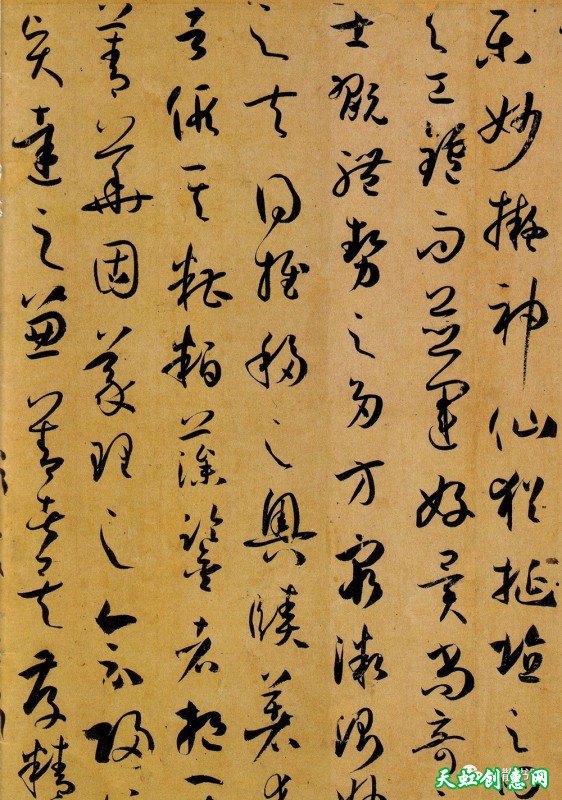 樂妙擬神仙猶埏埴之
與工鑪而並運好異尚奇
士翫體勢之多方窮微測妙
之夫得推移之奧賾著述
者假其糟粕藻鑒者挹
菁華固義理之會歸
賢達之兼善者矣存精
天虹创惠网